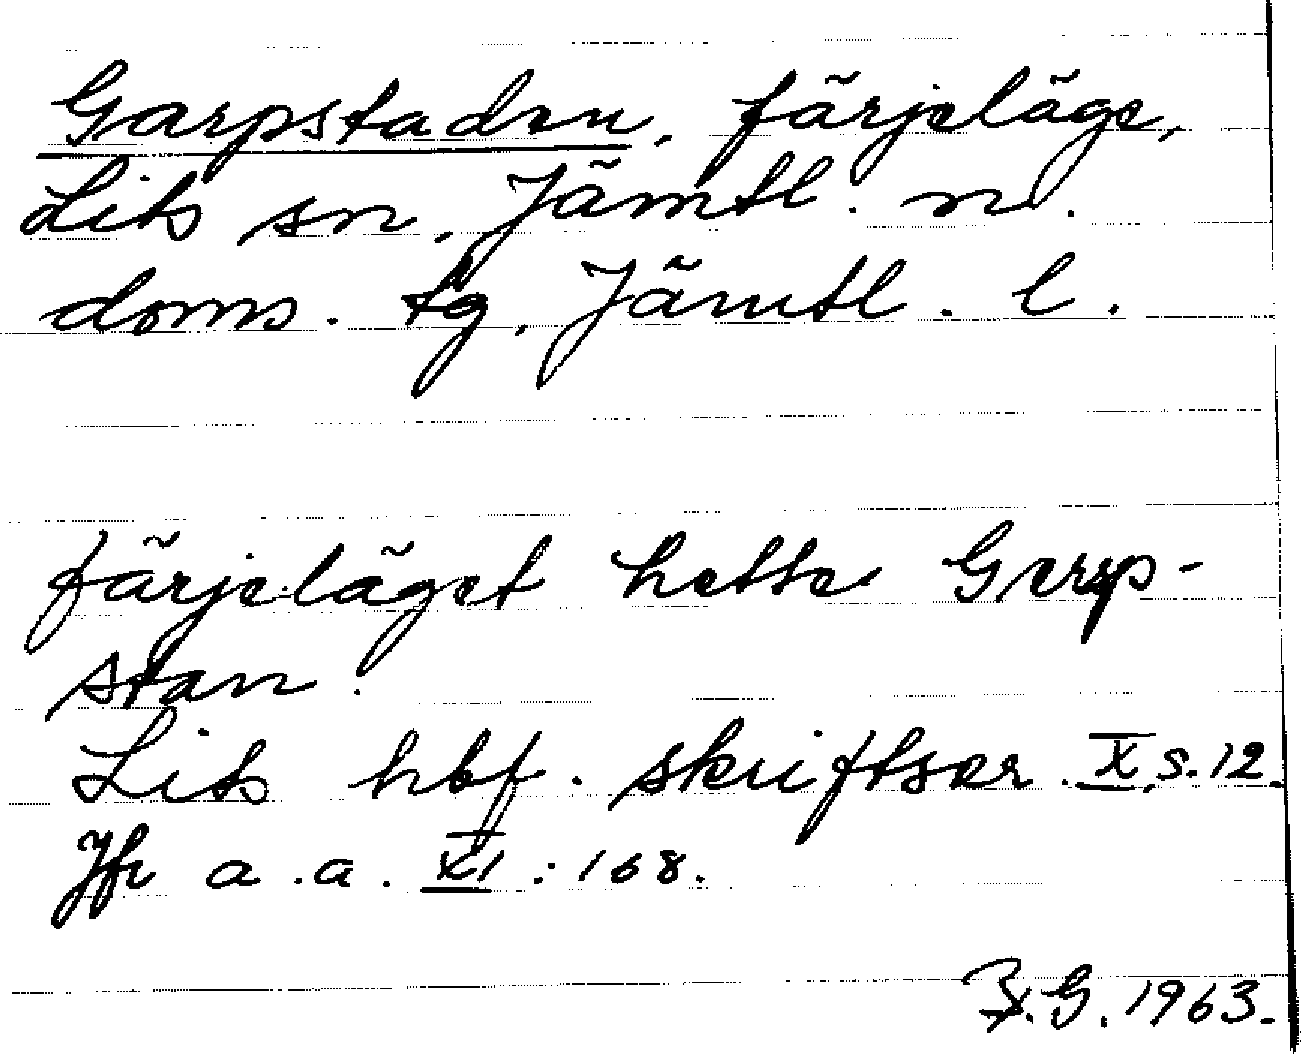 Garpstaden, färjeläge,
Lits sn, Jämtl. n.
doms. tg, Jämtl. l.
färjeläget hette Garp-
stan.
Lits hbf. skriftser. X, s. 12.
Jfr a. a. XI : 168.
F. G. 1963.